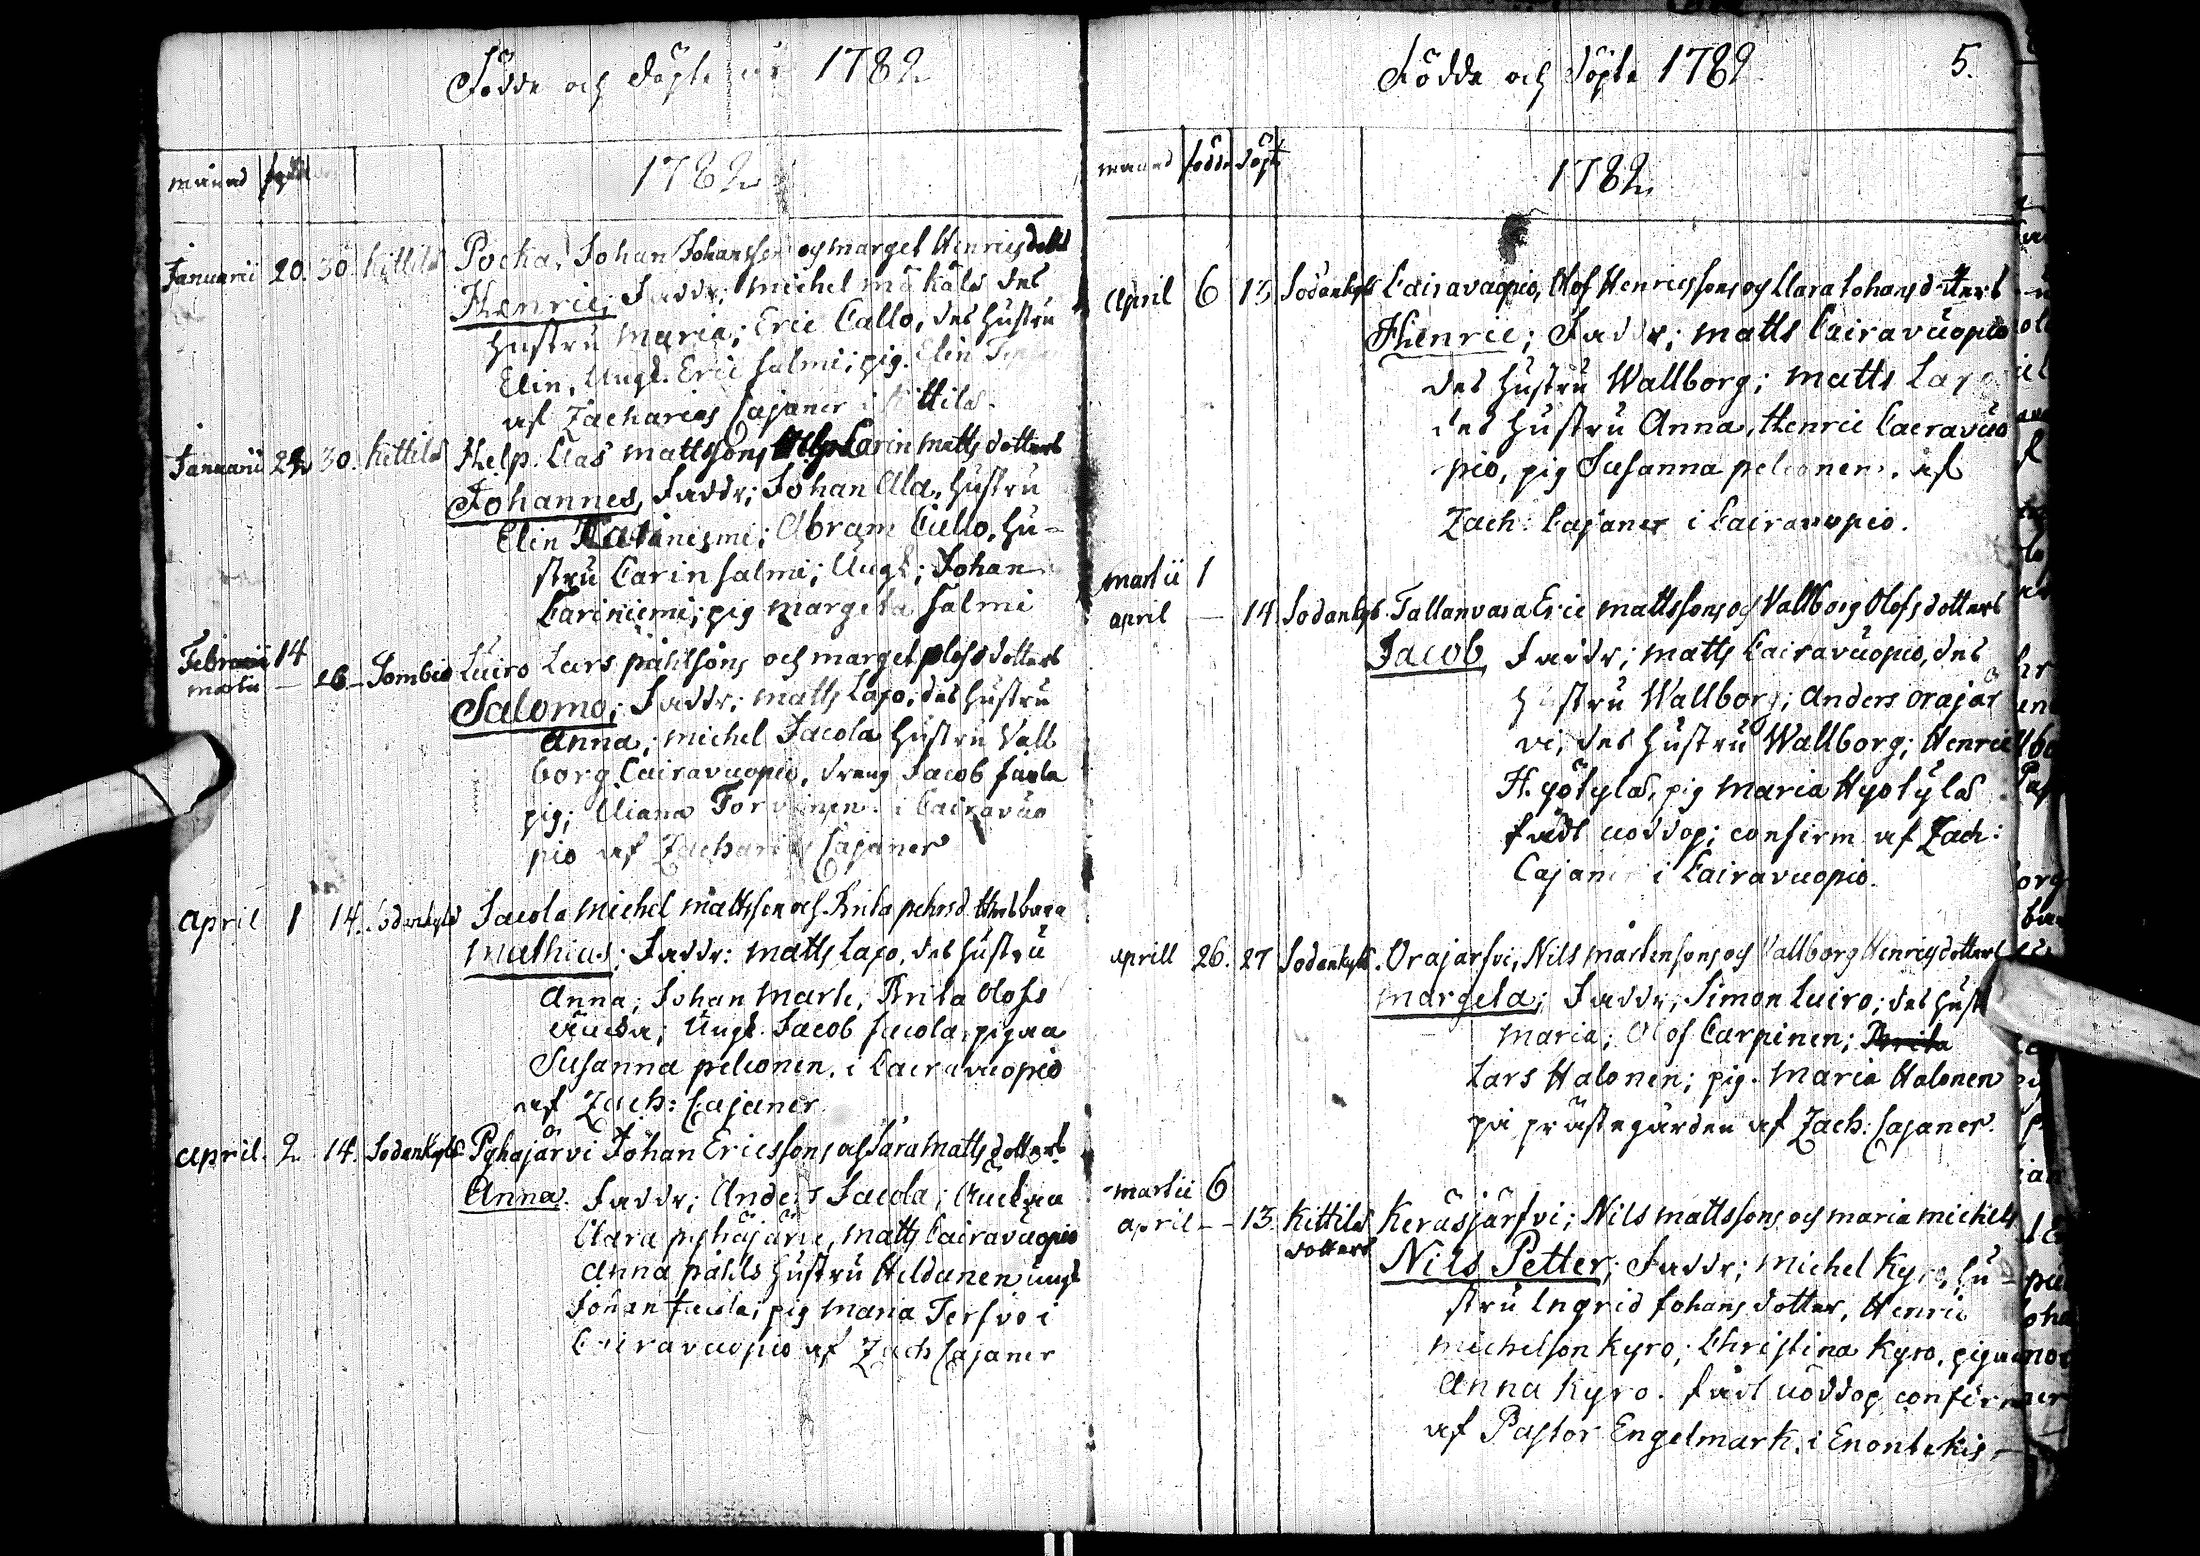 Födde och döpte år 1782
månad född
1782
Januarii 20. 30. Kittilä Pocka, Johan Johansson och Marget Henricsdotters
Henric; Faddr; Michel Määkälä des
hustru Maria; Eric Callo, des hustru
Elin, Ungk. Eric Salmi; pig. Elin
af Zacharias Cajaner i Kittilä.
Januarii 30. Kittilä Help. Clas Mattssons Carin Mattsdotters
Johannes, Faddr; Johan Ala, hustru
Elin; Abram Callo, hu-
stru Carin Salmi; Ungk; Johan
Cariniemi; pig Margeta Salmi
Februarii 14
Martii — 26 — Sombio Luiro Lars Påhlsons och Marget Olofsdotters
Salomo; Faddr; Matts Lapo, des hustru
Anna; Michel Jacola hustru Vall
borg Cairavuopio, dreng Jacob Jacola
pig; Cairavuo
pio af Zacharias Cajaner
April 1 14. Sodankylä Jacola Michel Mattsson och Brita Pehrsd.
Mathias; Faddr: Matts Lapo, des hustru
Anna; Johan Mark, Brita Olofs
Ungk. Jacob Jacola, pigaa
Susanna Pelconen. i Cairavuopio
af Zach: Cajaner
April. 2 14. Sodankylä Pyhäjärvi Johan Ericssons och Sara Mattsdotters
Anna. Faddr; Anders Jacola;
Clara Pyhäjärvi, Matts Cairavuopio
Anna Påhls hustru Heldanen ungk
Johan Jacola; pig Maria Terfvo i
Cairavuopio af Zach Cajaner
Födde och döpte 1782. 5.
månad född döpt
1782
April 6 13 Sodankylä Cairavuopio, Olof Henricssons och Clara Johansdotters
Henric; Faddr; Matts Cairavuopio
des hustru Wallborg; Matts Lapo
des hustru Anna, Henric Cairavuo
pio, pig Susanna Pelconen. af
Zach: Cajaner i Cairavuopio.
Martii 1
April — 14. Sodankylä. Tallanvara Eric Mattssons och Vallborg Olofsdotters
Jacob, Faddr; Matts Cairavuopio, des
hustru Wallborg; Anders Orajär
vi, des hustru Wallborg; Henric
Hyötylä, pig Maria Hyötylä
confirm af Zach:
Cajaner i Cairavuopio.
Aprill 26. 27 Sodankylä. Orajärfvi, Nils Mårtensons och Vallborg Henricsdotters
Margeta; Faddr; Simon Luiro; des hust
Maria; Olof Carpinen; Brita
Lars Halonen; pig. Maria Halonen
på prästegården af Zach: Cajaner.
Martii 6
April — 13. Kittilä Keräsjärfvi; Nils Mattssons och Maria Michels
dotters Nils Petter; Faddr; Michel Kyro, hu-
stru Ingrid Johansdotter, Henric
Michelson Kyro; Christina Kyro, pigan
Anna Kyro. confirm
af Pastor Engelmark. i Enontekis —